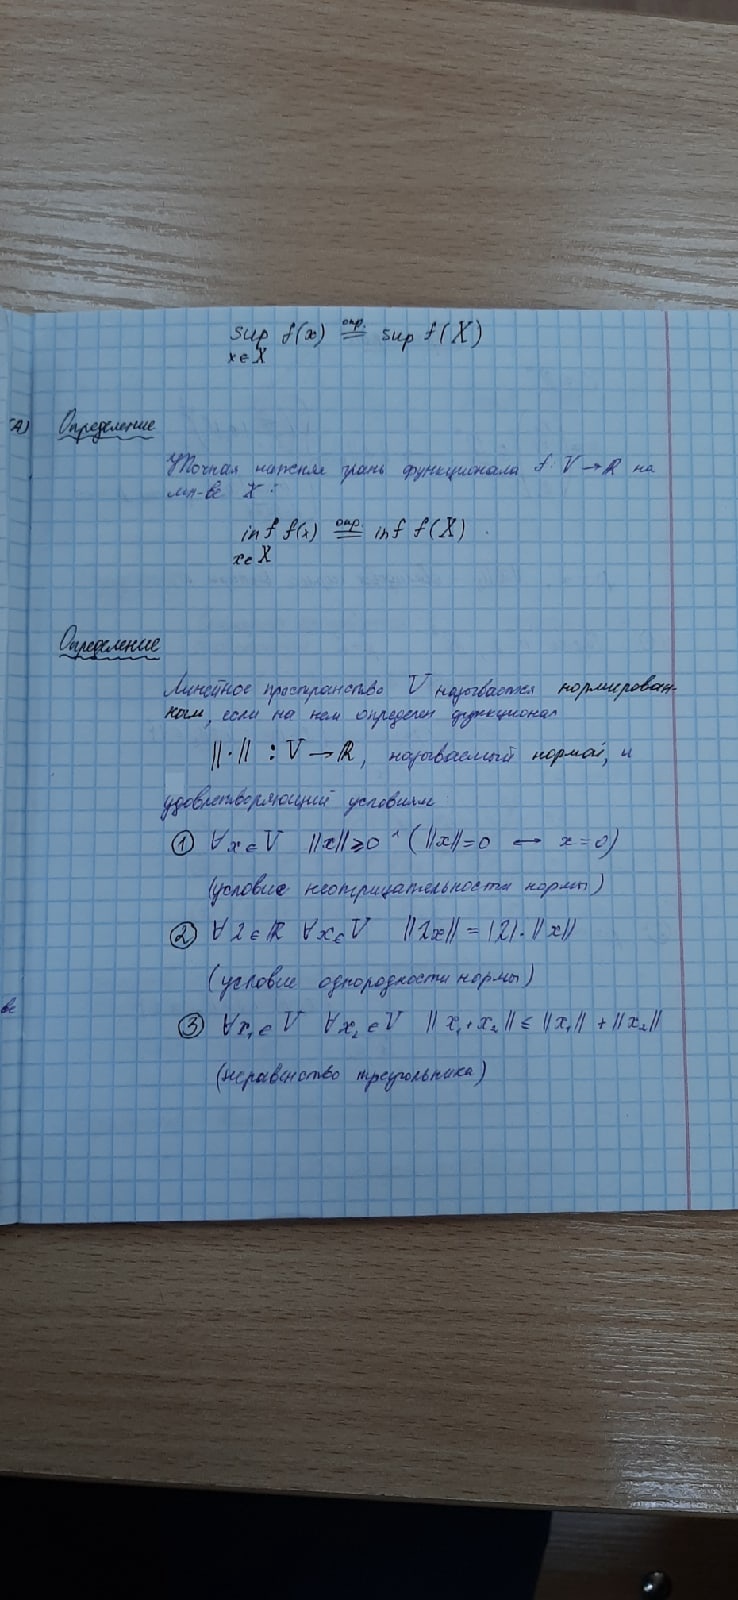 sup f(x) опр. = sup f(X)
x∈X
Определение
Точная нижняя грань функционала f: V → ℝ на
мн-ве X:
inf f(x) опр. = inf f(X)
x∈X
Определение
Линейное пространство V называется нормирован-
ным, если на нем определен функционал
||·|| : V → ℝ, называемый нормой, и
удовлетворяющий условиям:
① ∀x∈V ||x||≥0 ^ (||x||=0 ↔ x=0)
(условие неотрицательности нормы)
② ∀λ∈ℝ ∀x∈V ||λx|| = |λ|·||x||
(условие однородности нормы)
③ ∀x₁∈V ∀x₂∈V ||x₁+x₂|| ≤ ||x₁|| + ||x₂||
(неравенство треугольника)